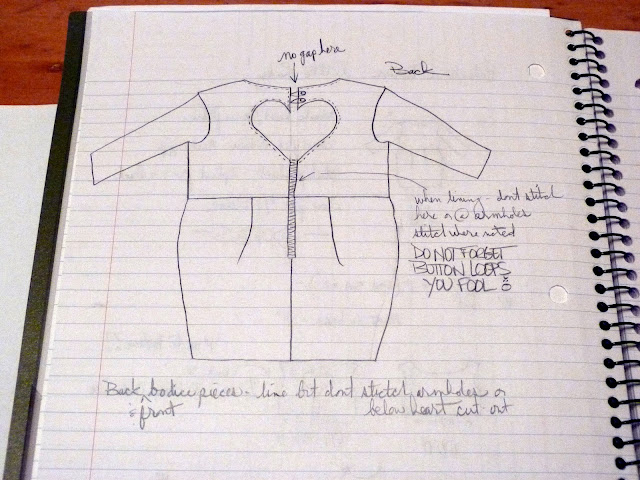 no gap here
Back
when lining - dont stitch
here or @ armholes
stitch where noted
DO NOT FORGET
BUTTON LOOPS
YOU FOOL
Back bodice pieces - line but dont stietch armholes or
& front below heart cut out